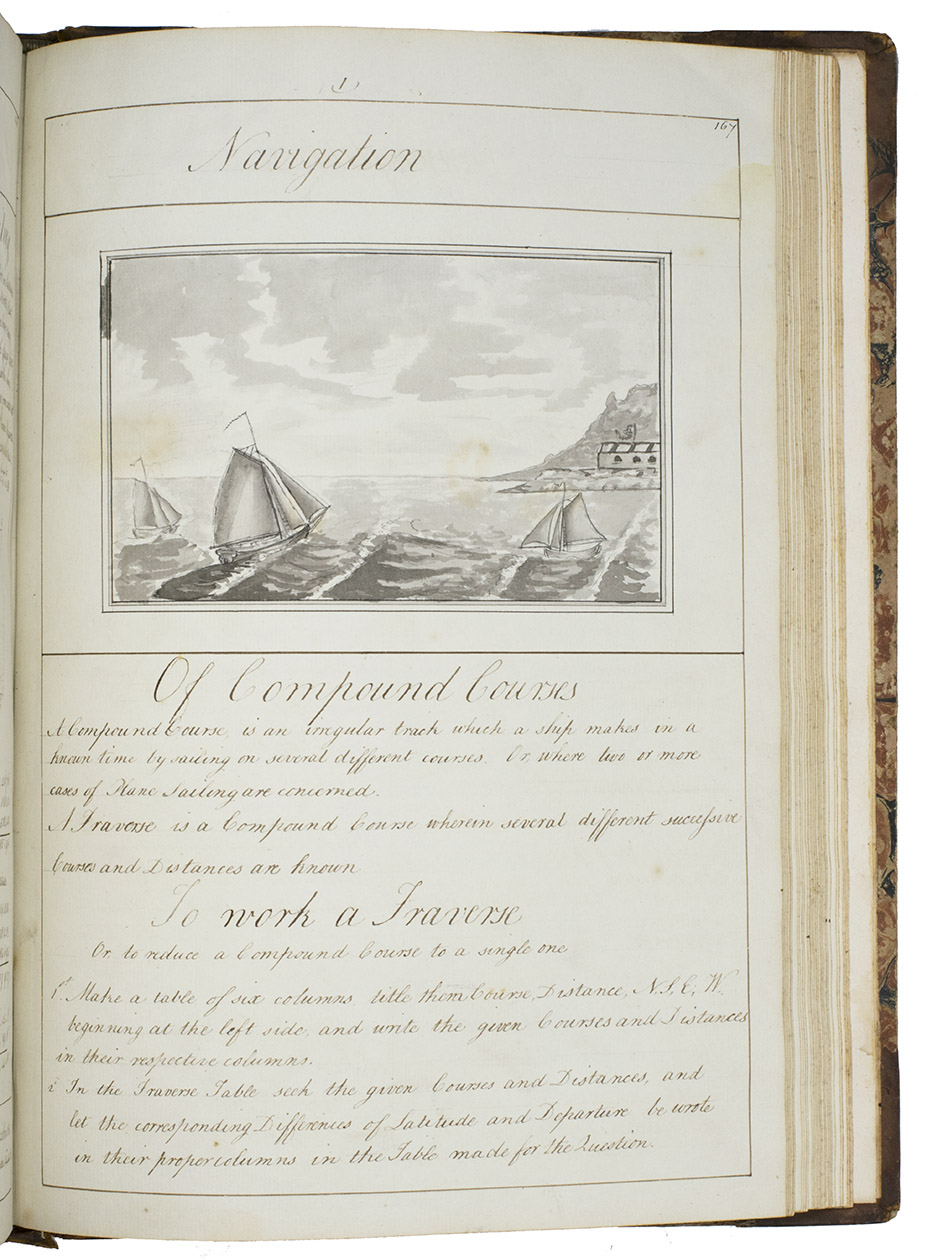 1
167
Navigation
Of Compound Courses
A Compound Course, is an irregular track which a ship makes in a
known time by sailing on several different courses. Or, where two or more
cases of Plane Sailing are concerned.
A Traverse is a Compound Course wherein several different successive
Courses and Distances are known
To work a Traverse
Or to reduce a Compound Course to a single one
1st. Make a table of six columns, title them Course, Distance, N. S, E, W.
beginning at the left side, and write the given Courses and Distances
in their respective columns.
2 In the Traverse Table seek the given Courses and Distances, and
let the corresponding Differences of Latitude and Departure be wrote
in their proper columns in the Table made for the Question.